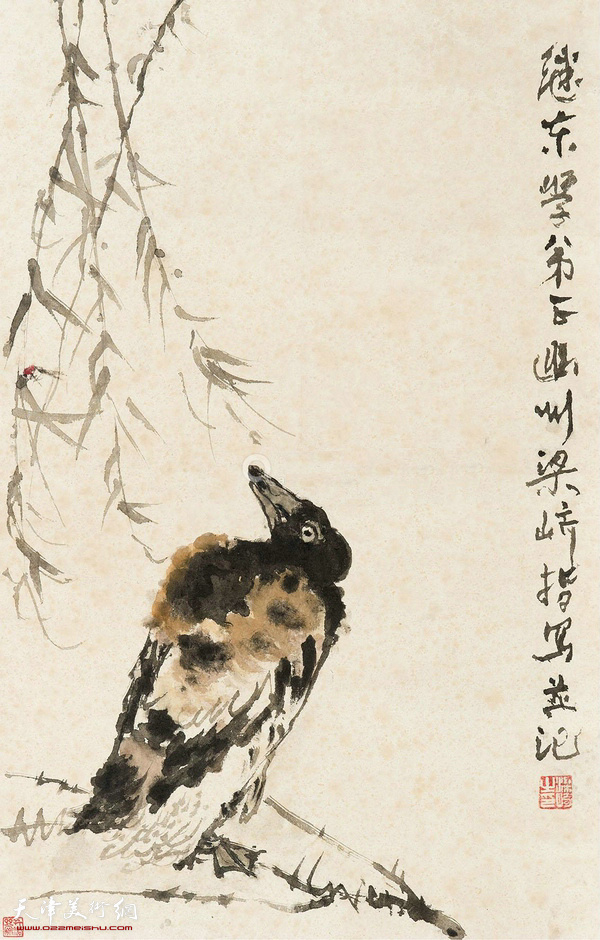 继东学弟正幽州梁崎指写并记
天津美術網
www.022meishu.com